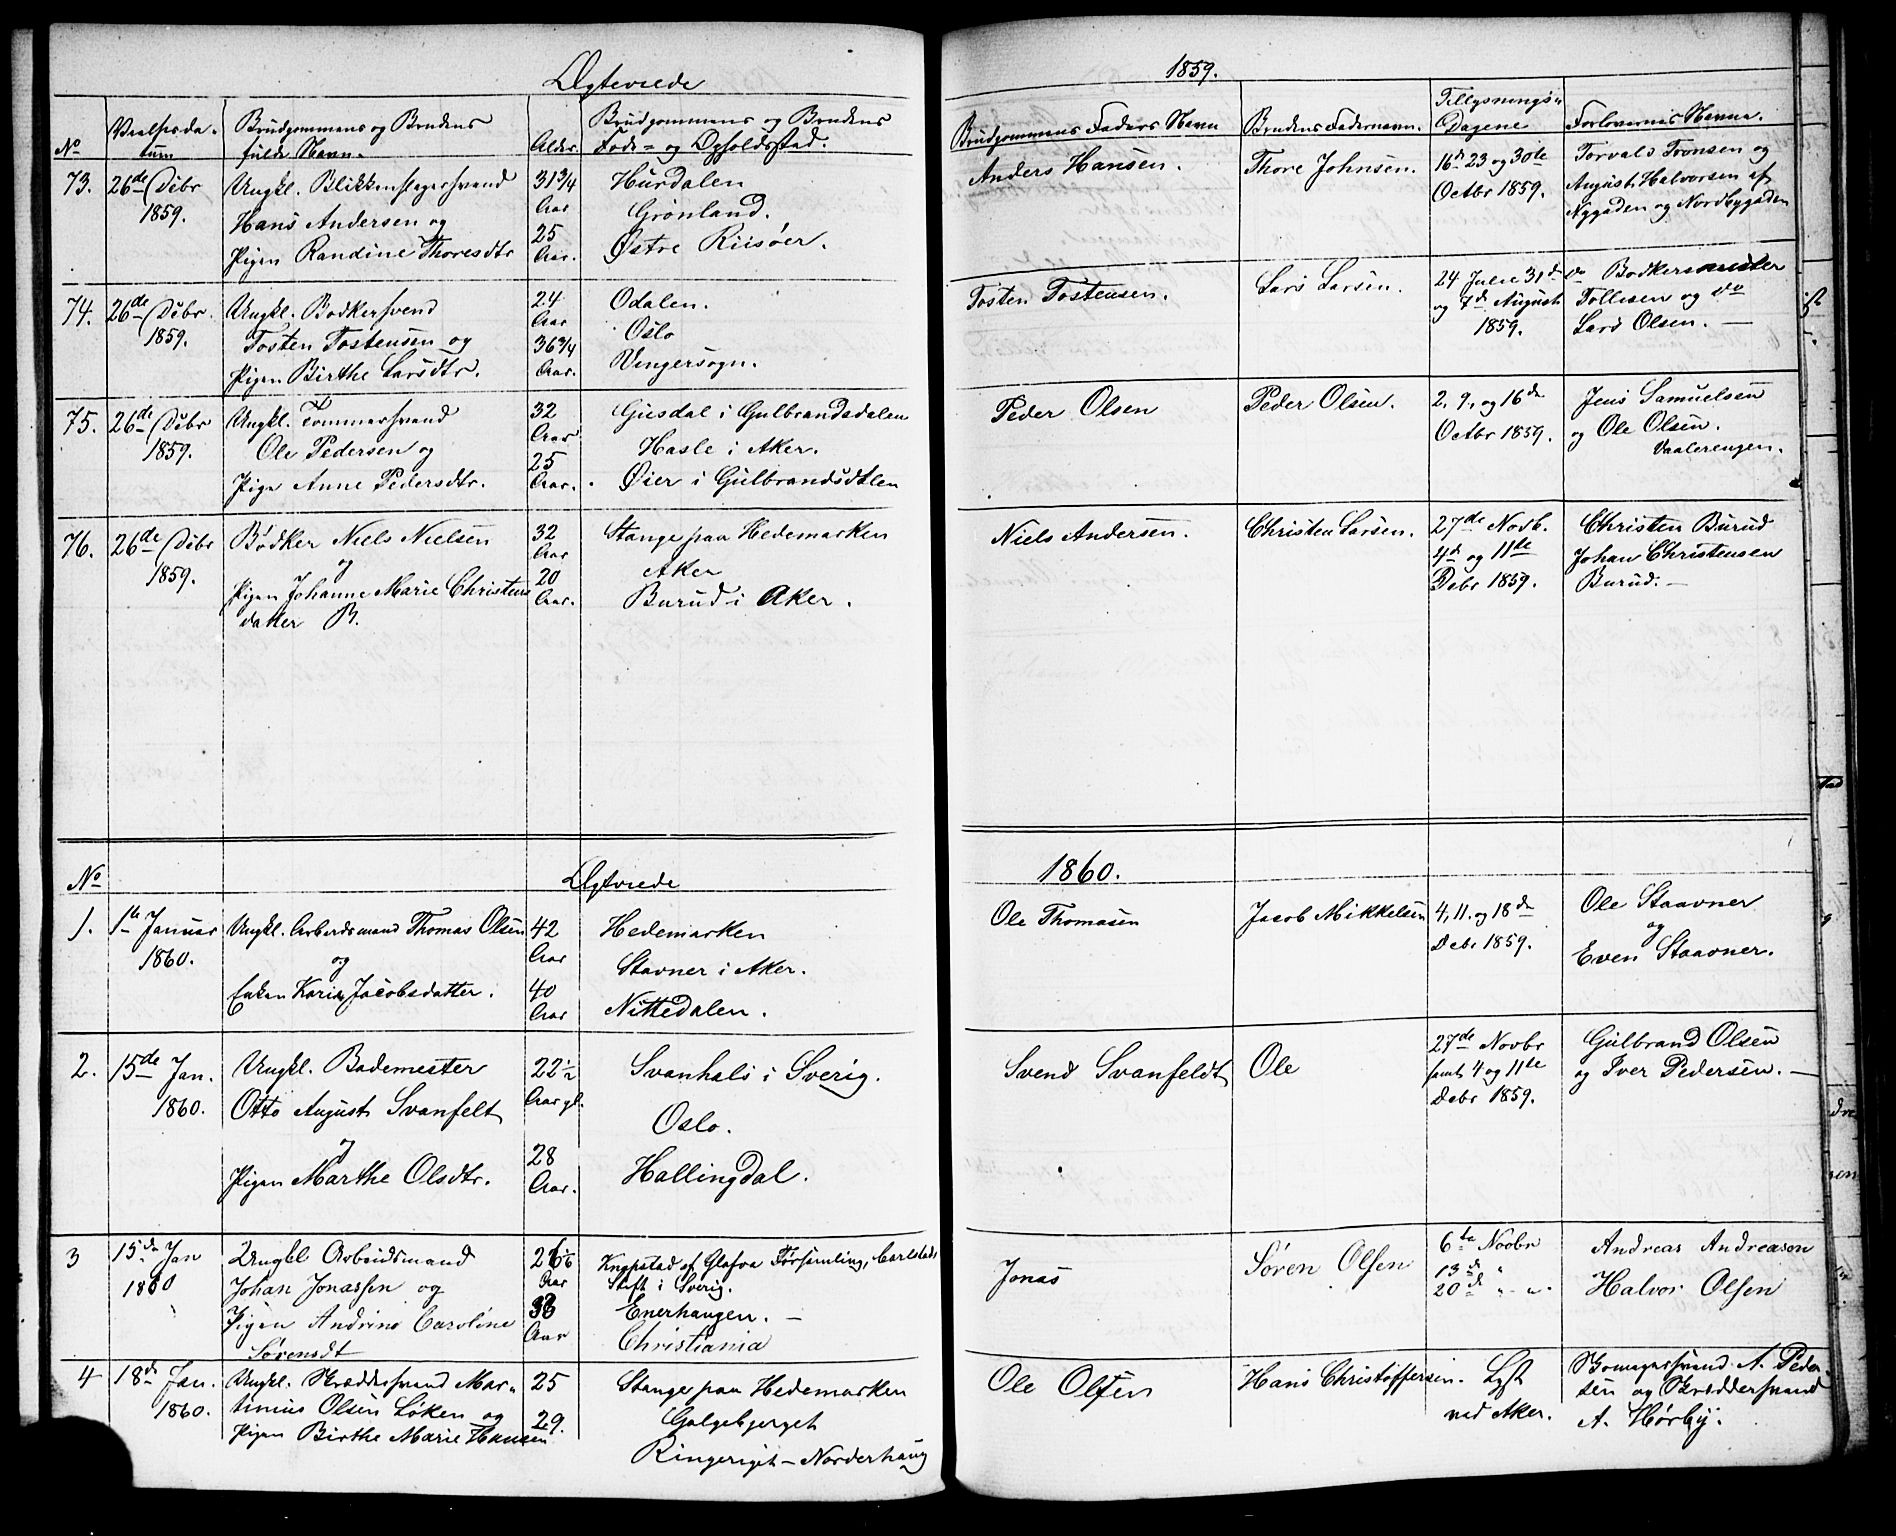 Ægteviede
No
Vielsesdatum
Brudgommens og Brudens
fulde Navn.
Alder.
Brudgommens og Brudens
Føde= og Opholdsstad.
73.
26de Debr
1859.
Ungkl. Blikkenslagersvend
Hans Andersen og
Pigen Randine Thoresdtr
31 3/4
Aar
25
Aar.
Hurdalen
Grønland.
Østre Riisøer.
74.
26de Debr.
1859.
Ungkl. Bødkersvend
Tosten Tostensen og
Pigen Birthe Larsdtr.
24
Aar
36 3/4
Aar.
Odalen.
Oslo
Vingersogn.
75.
26de Debr
1859.
Ungkl. Tømmersvend
Ole Pedersen og
Pige Anne Pedersdtr.
32
Aar
25
Aar.
Giesdal i Gulbrandsdalen
Hasle i Aker.
Øier i Gulbrandsdalen
76.
26de Debr
1859.
Bødker Niels Nielsen
og
Pigen Johanne Marie Christens
datter B.
32
Aar
20
Aar.
Stange paa Hedemarken
Aker
Burud i Aker.
No
Ægtviede
1.
1te Januar
1860.
Ungkl. Arbeidsmand Thomas Olsen
og
Enken Kari Jacobsdatter.
42
Aar
40
Aar
Hedemarken
Stavner i Aker.
Nittedalen.
2.
15de Jan.
1860.
Ungkl. Bademester
Otto August Svanfelt
og
Pigen Marthe Olsdtr.
22 1/2
Aar gl.
28
Aar.
Svanhals i Sverig.
Oslo.
Hallingdal.
3
15de Jan
1860
Ungkl Arbeidsmand
Johan Jonassen og
Pigen Andrine Caroline
Sørensdt
Aar
Aar
Knypstad af Glafva Församling, Carlstads
Stift i Sverig.
Enerhaugen. —
Christiania
4
18de Jan.
1860.
Ungkl. Skræddersvend Mar-
tinius Olsen Løken og
Pigen Birthe Marie Hansen
25
29.
Stange paa Hedemarken
Galgebjerget
Ringeriget - Norderhaug
1859.
Brudgommens Faders Navn
Brudens Fadernavn.
Tillysnings-
Dagene
Forlovernes Navne.
Anders Hansen.
Thore Johnsen.
16de 23 og 30te
Octbr 1859.
Torvald Tronsen og
August Halvorsen af
Nygaden og Nordbygaden
Tosten Tostensen.
Lars Larsen.
24 Julie 31de
og 7de August
1859.
Bødkermester
Tollesen og do
Lars Olsen. —
Peder Olsen
Peder Olsen.
2, 9, og 16de
Octbr 1859.
Jens Samuelsen
og Ole Olsen.
Vaalerengen.
Niels Andersen.
Christen Larsen.
27de Novb.
4de og 11te
Debr 1859.
Christen Burud
Johan Christensen
Burud. —
1860.
Ole Thomasen
Jacob Mikkelsen
4, 11. og 18de
Debr 1859.
Ole Staavner
og
Even Staavner.
Svend Svanfeldt
Ole
27de Novbr
samt 4 og 11te
Debr 1859.
Gulbrand Olsen
og Iver Pedersen. —
Jonas
Søren Olsen
6te Novbr
13de "
20de " "
Andreas Andreasen
Halvor Olsen
Ole Olsen
Hans Christoffersen.
Lyst
ved Aker.
A. Peder-
sen og Skræddersvend
A. Hørby.